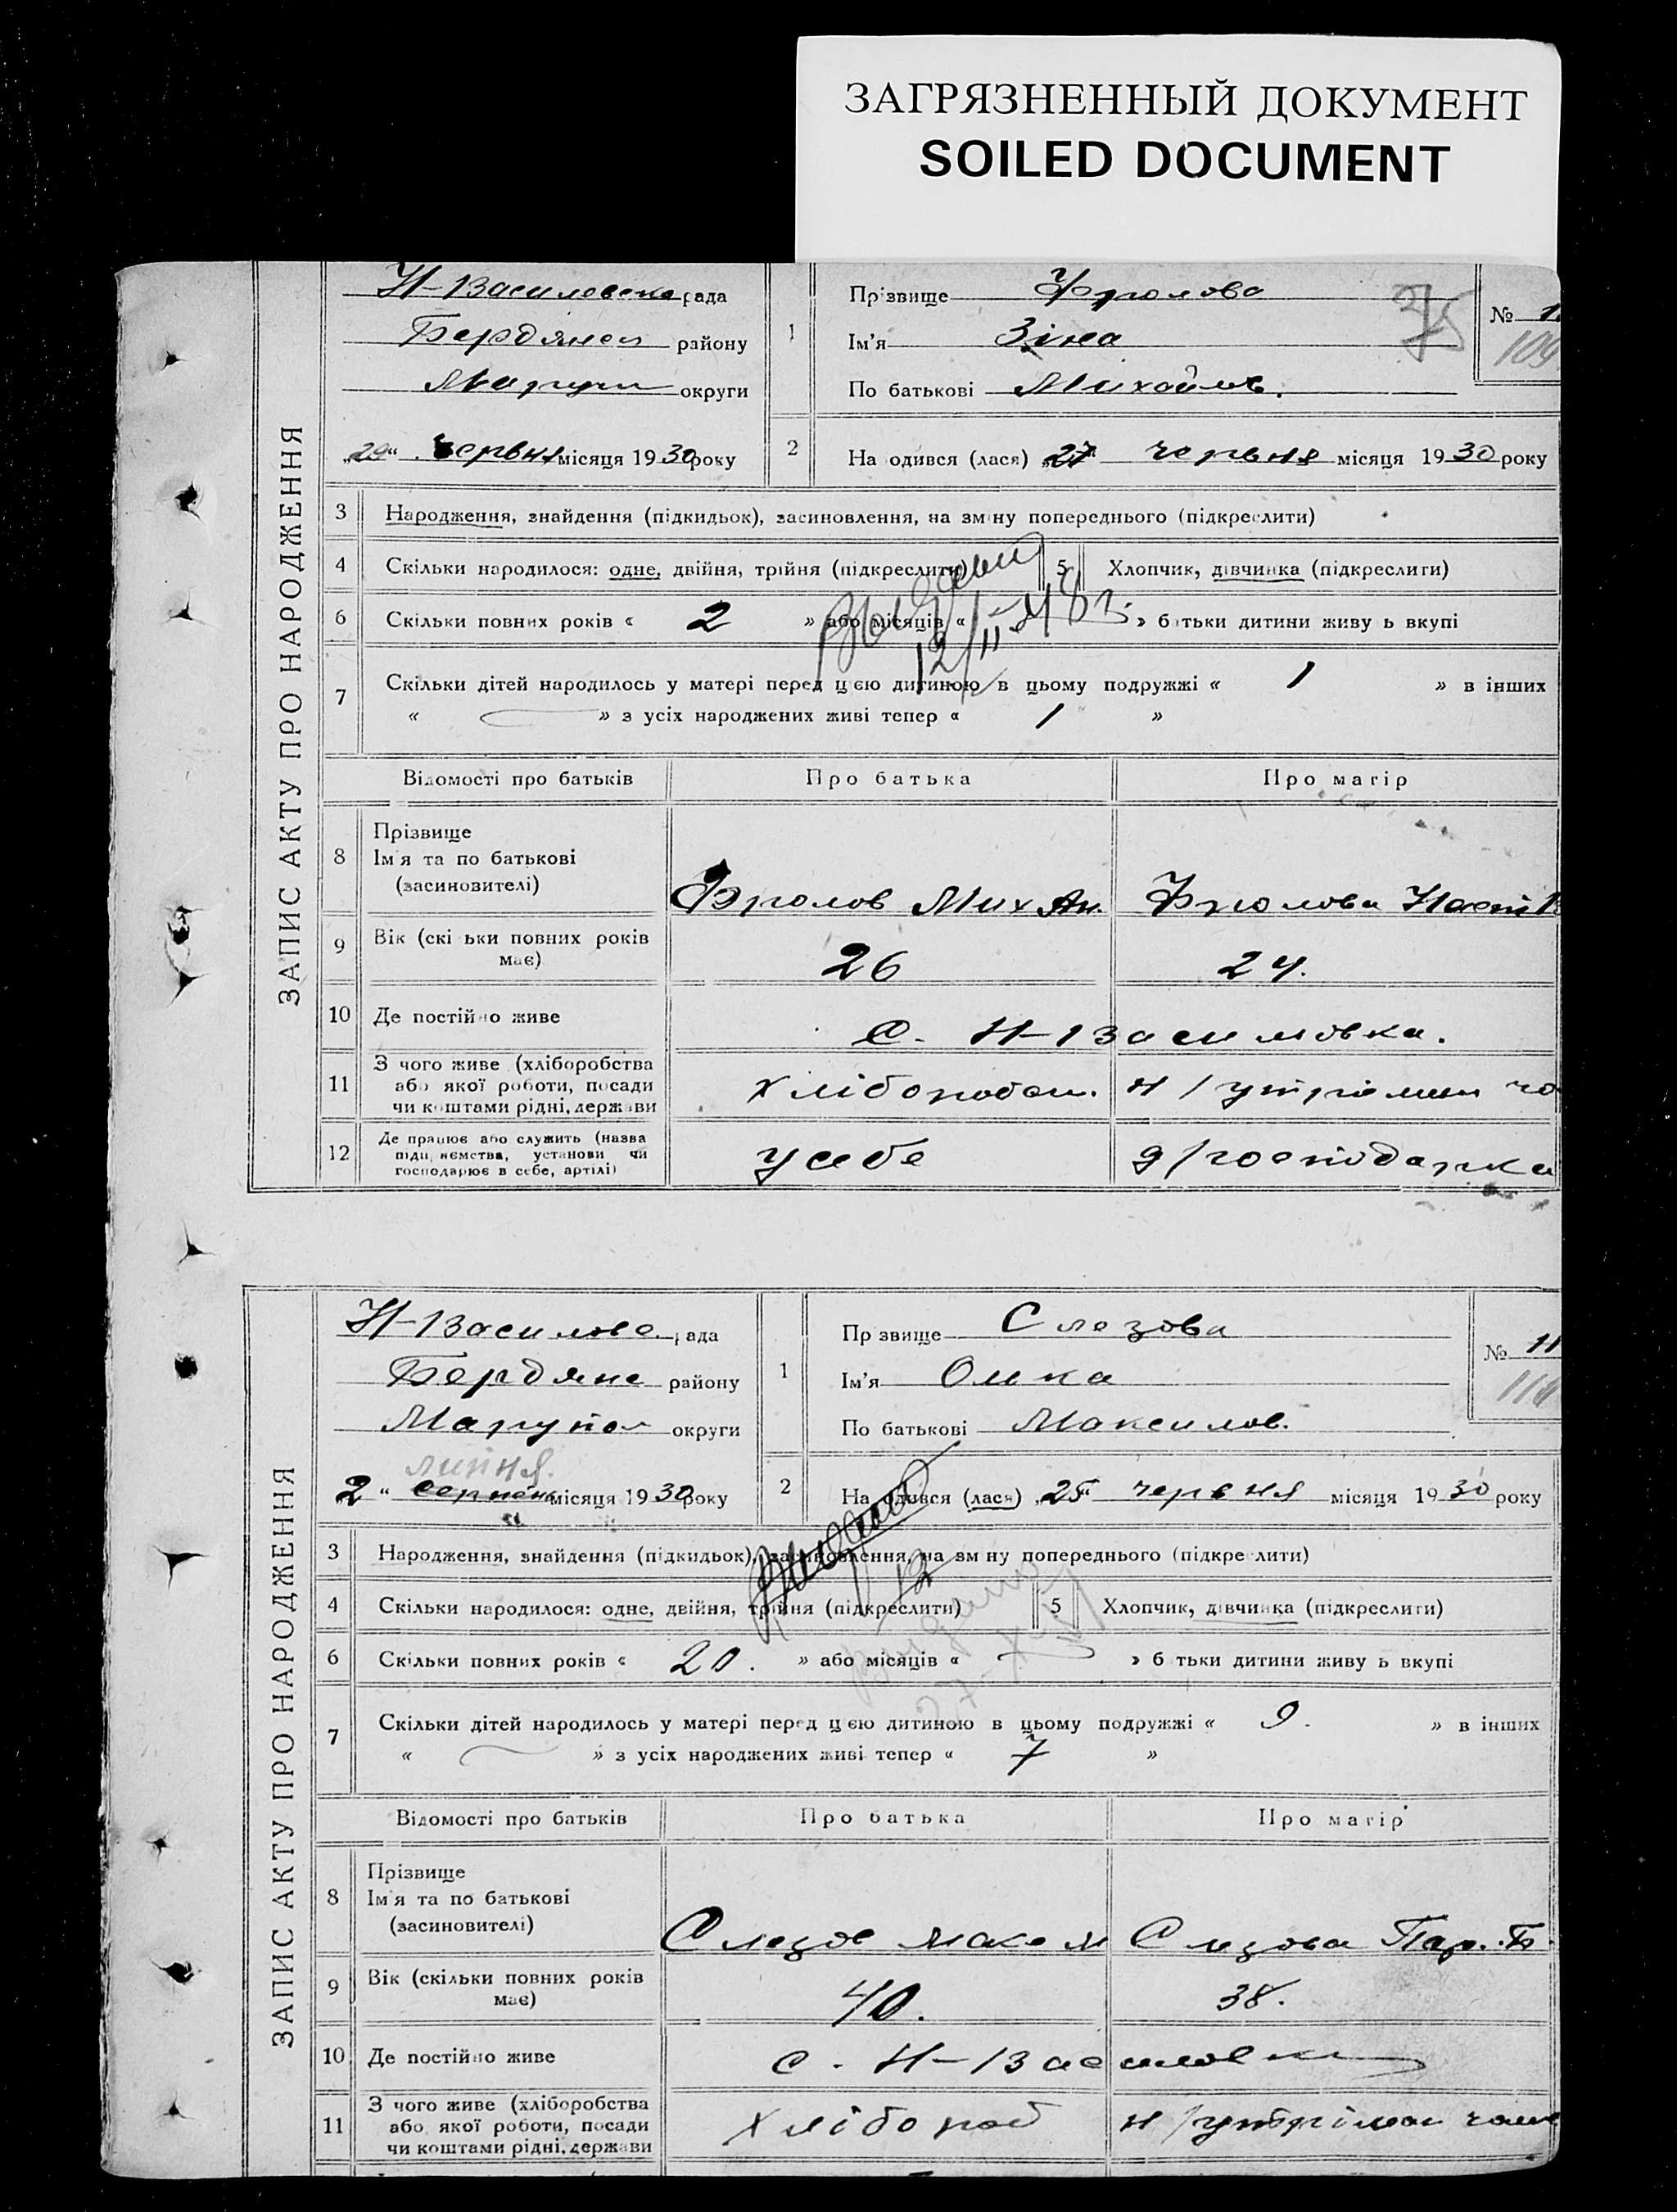 ЗАГРЯЗНЕННЫЙ ДОКУМЕНТ
SOILED DOCUMENT
ЗАПИС АКТУ ПРО НАРОДЖЕННЯ
Н-Василевска рада
Бердянск району
Маріуп округи
"29" Червня місяця 1930 року
1
Прізвище Фролова
Ім'я Зіна
По батькові Михайлов.
75
№ 1
109
2
Народився (лася) "27" червня місяця 1930 року
3 Народження, знайдення (підкидьок), засиновлення, на зміну попереднього (підкреслити)
4 Скільки народилося: одне, двійня, трійня (підкреслити) 5 Хлопчик, дівчинка (підкреслити)
6 Скільки повних років « 2 » або місяців « » батьки дитини живуть вкупі
12/II-48 г.
7 Скільки дітей народилось у матері перед цією дитиною в цьому подружжі « 1 » в інших
« — » з усіх народжених живі тепер « 1 »
Відомості про батьків Про батька Про матір
8 Прізвище
Ім'я та по батькові
(засиновителі)
Фролов Мих Ан. Фролова Наст
9 Вік (скільки повних років
має)
26 24.
10 Де постійно живе с. Н-Василовка.
11 З чого живе (хліборобства
або якої роботи, посади
чи коштами рідні, держави
хлібороб н/утріман
12 Де працює або служить (назва
підприємства, установи чи
господарює в себе, артілі)
у себе д/господарка
ЗАПИС АКТУ ПРО НАРОДЖЕННЯ
Н-Василовс рада
Бердянс району
Маріупол округи
липня.
"2" серпень місяця 1930 року
1
Прізвище Слезова
Ім'я Олка
По батькові Максимов.
№ 11
110
2
Народився (лася) "25" червня місяця 1930 року
3 Народження, знайдення (підкидьок), засиновлення, на зміну попереднього (підкреслити)
4 Скільки народилося: одне, двійня, трійня (підкреслити) 5 Хлопчик, дівчинка (підкреслити)
6 Скільки повних років « 20. » або місяців « — » батьки дитини живуть вкупі
7 Скільки дітей народилось у матері перед цією дитиною в цьому подружжі « 9. » в інших
« — » з усіх народжених живі тепер « 7 »
Відомості про батьків Про батька Про матір
8 Прізвище
Ім'я та по батькові
(засиновителі)
Слезов Макс М Слезова Пар. Т.
9 Вік (скільки повних років
має)
40. 38.
10 Де постійно живе с. Н-Василовк
11 З чого живе (хліборобства
або якої роботи, посади
чи коштами рідні, держави
хлібороб н/утріман чолов